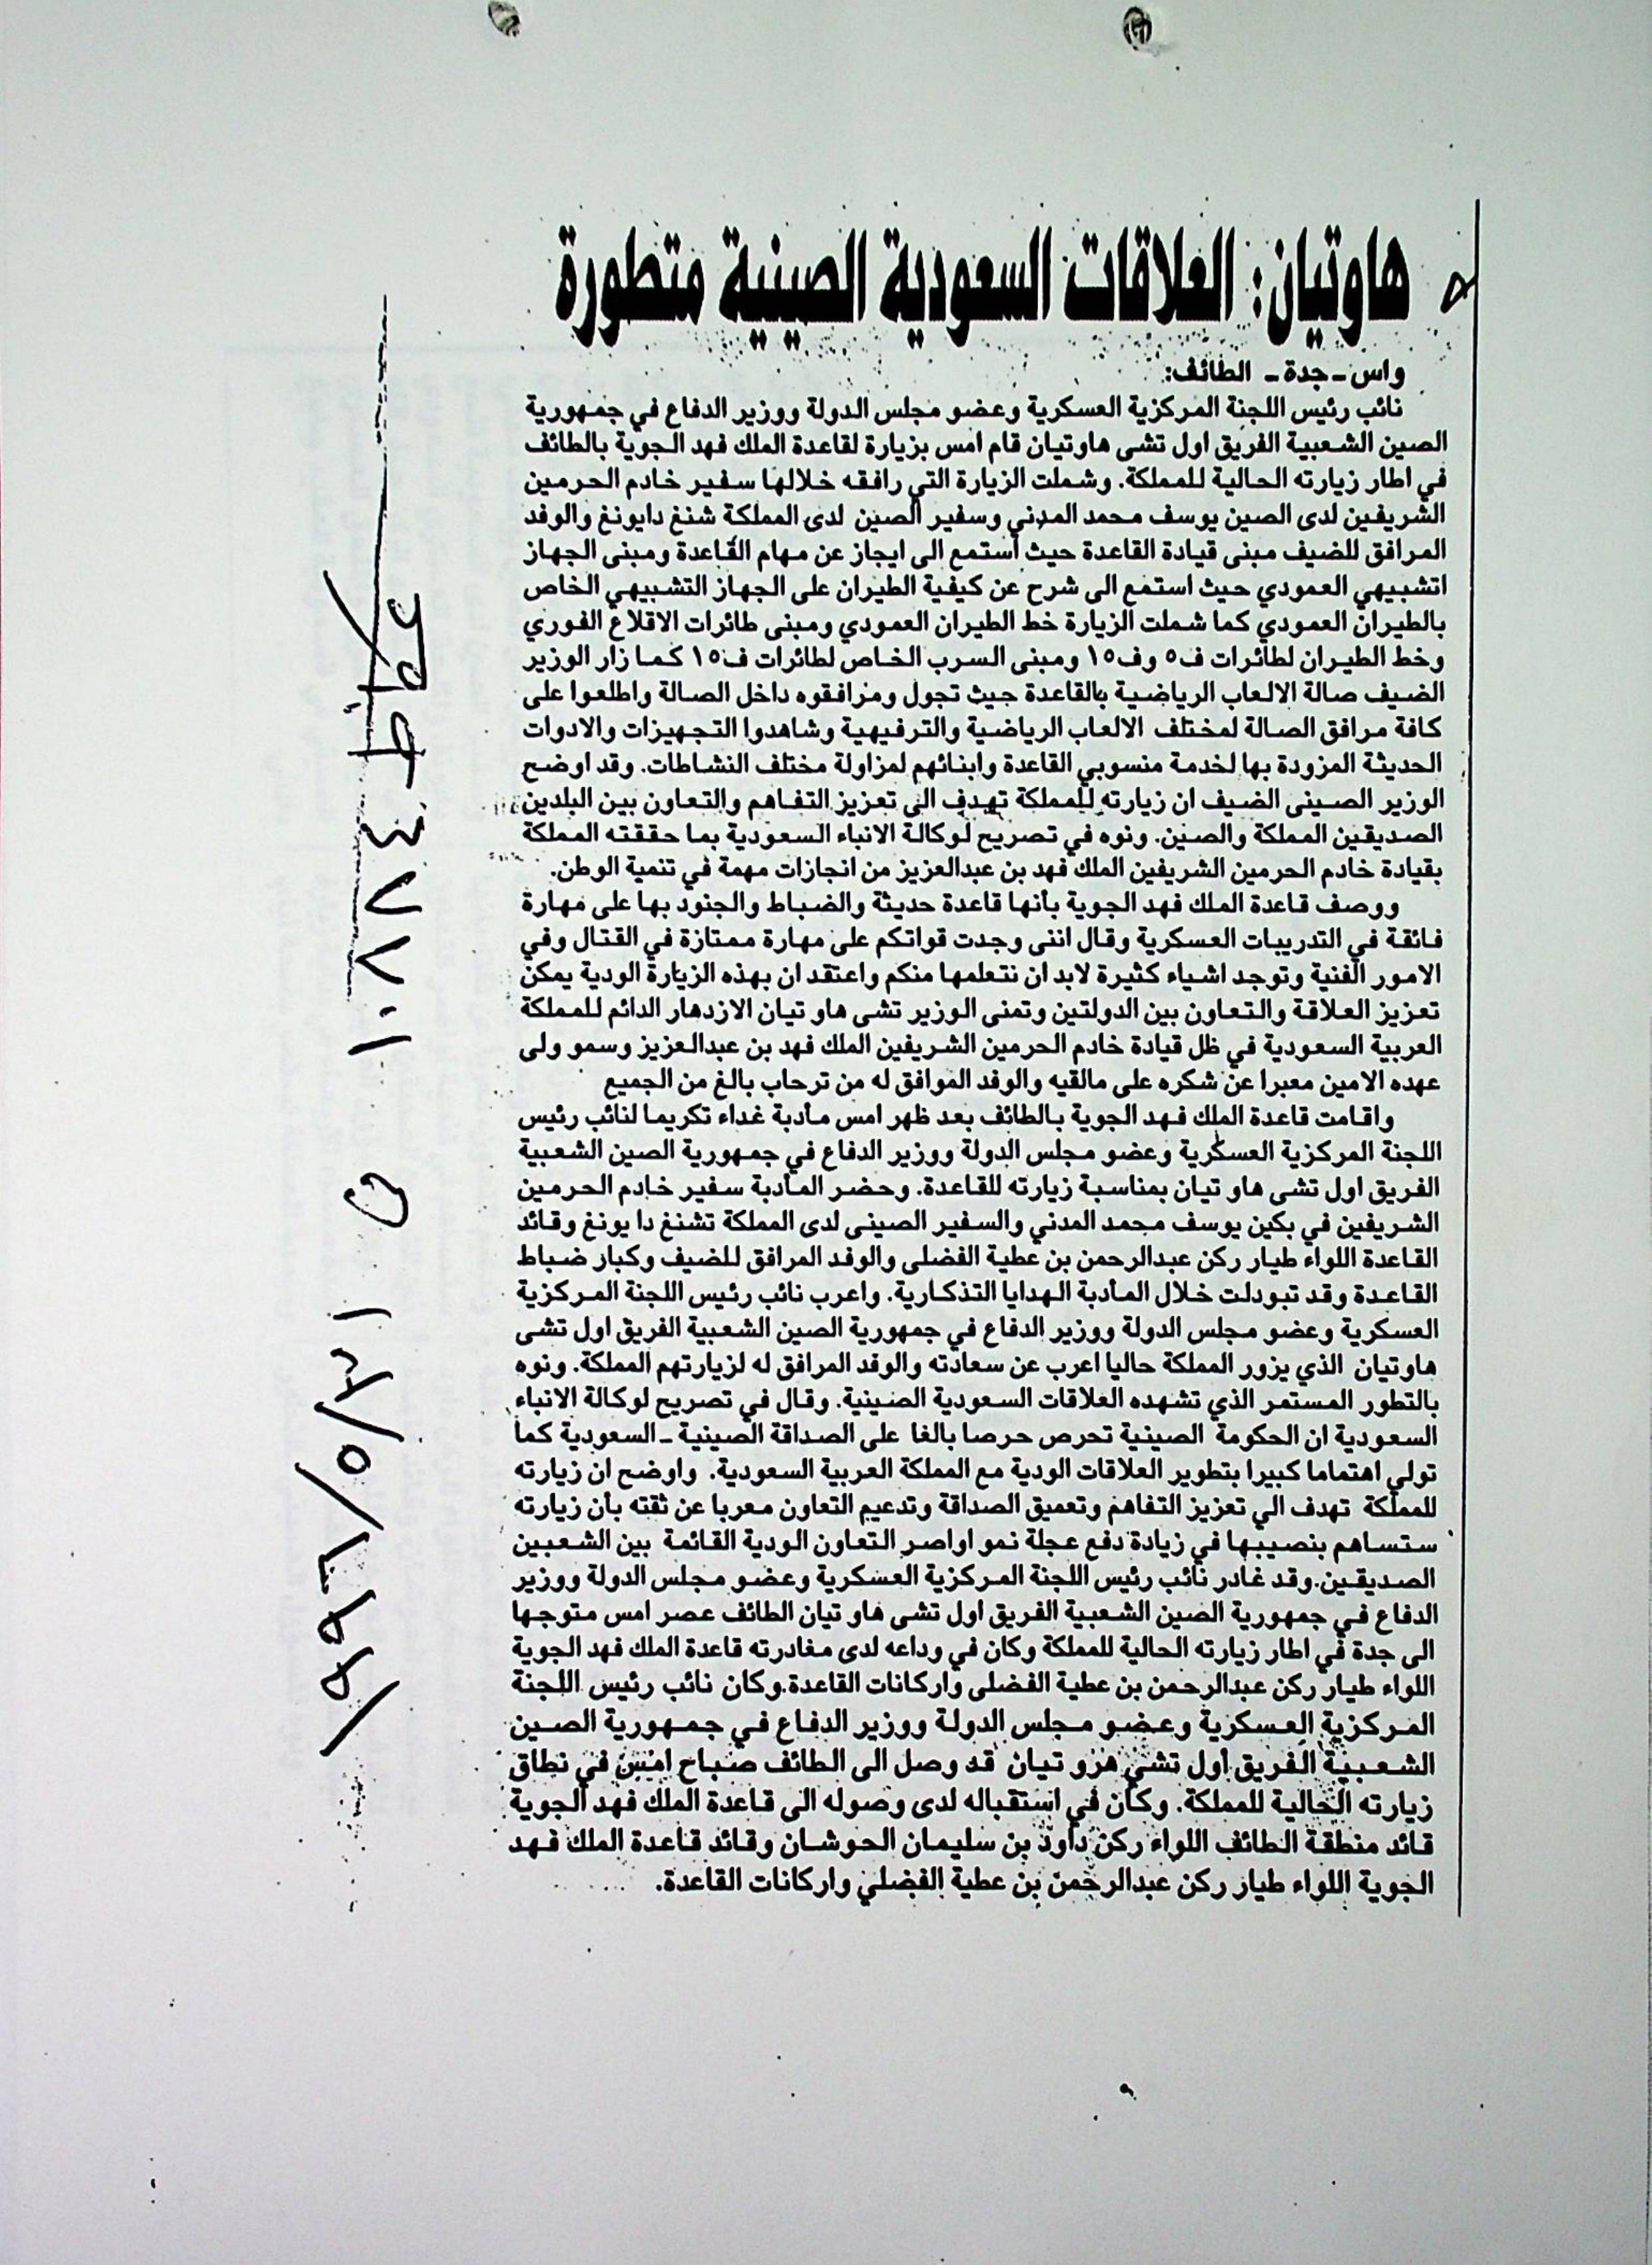 هاوتيان: العلاقات السعودية الصينية متطورة
واس ـ جدة ـ الطائف:
نائب رئيس اللجنة المركزية العسكرية وعضو مجلس الدولة ووزير الدفاع في جمهورية
الصين الشعبية الفريق اول تشى هاوتيان قام امس بزيارة لقاعدة الملك فهد الجوية بالطائف
في اطار زيارته الحالية للمملكة. وشملت الزيارة التي رافقه خلالها سفير خادم الحرمين
الشريفين لدى الصين يوسف محمد المدني وسفير الصين لدى المملكة شنغ دايونغ والوفد
المرافق للضيف مبنى قيادة القاعدة حيث أستمع الى ايجاز عن مهام القاعدة ومبنى الجهاز
اتشبيهي العمودي حيث استمع الى شرح عن كيفية الطيران على الجهاز التشبيهي الخاص
بالطيران العمودي كما شملت الزيارة خط الطيران العمودي ومبنى طائرات الاقلاع الفوري
وخط الطيران لطائرات ف٥ وف١٥ ومبنى السرب الخاص لطائرات ف١٥ كما زار الوزير
الضيف صالة الالعاب الرياضية بالقاعدة حيث تجول ومرافقوه داخل الصالة واطلعوا على
كافة مرافق الصالة لمختلف الالعاب الرياضية والترفيهية وشاهدوا التجهيزات والادوات
الحديثة المزودة بها لخدمة منسوبي القاعدة وابنائهم لمزاولة مختلف النشاطات. وقد اوضح
الوزير الصينى الضيف ان زيارته للمملكة تهدف الى تعزيز التفاهم والتعاون بين البلدين
الصديقين المملكة والصين. ونوه في تصريح لوكالة الانباء السعودية بما حققته المملكة
بقيادة خادم الحرمين الشريفين الملك فهد بن عبدالعزيز من انجازات مهمة في تنمية الوطن.
ووصف قاعدة الملك فهد الجوية بأنها قاعدة حديثة والضباط والجنود بها على مهارة
فائقة في التدريبات العسكرية وقال اننى وجدت قواتكم على مهارة ممتازة في القتال وفي
الامور الفنية وتوجد اشياء كثيرة لابد ان نتعلمها منكم واعتقد ان بهذه الزيارة الودية يمكن
تعزيز العلاقة والتعاون بين الدولتين وتمنى الوزير تشى هاو تيان الازدهار الدائم للمملكة
العربية السعودية في ظل قيادة خادم الحرمين الشريفين الملك فهد بن عبدالعزيز وسمو ولى
عهده الامين معبرا عن شكره على مالقيه والوفد الموافق له من ترحاب بالغ من الجميع
واقامت قاعدة الملك فهد الجوية بالطائف بعد ظهر امس مأدبة غداء تكريما لنائب رئيس
اللجنة المركزية العسكرية وعضو مجلس الدولة ووزير الدفاع في جمهورية الصين الشعبية
الفريق اول تشى هاو تيان بمناسبة زيارته للقاعدة. وحضر المأدبة سفير خادم الحرمين
الشريفين في بكين يوسف محمد المدني والسفير الصينى لدى المملكة تشنغ دا يونغ وقائد
القاعدة اللواء طيار ركن عبدالرحمن بن عطية الفضلى والوفد المرافق للضيف وكبار ضباط
القاعدة وقد تبودلت خلال المأدبة الهدايا التذكارية. واعرب نائب رئيس اللجنة المركزية
العسكرية وعضو مجلس الدولة ووزير الدفاع في جمهورية الصين الشعبية الفريق اول تشى
هاوتيان الذي يزور المملكة حاليا اعرب عن سعادته والوفد المرافق له لزيارتهم المملكة. ونوه
بالتطور المستمر الذي تشهده العلاقات السعودية الصينية. وقال في تصريح لوكالة الانباء
السعودية ان الحكومة الصينية تحرص حرصا بالغا على الصداقة الصينية ـ السعودية كما
تولي اهتماما كبيرا بتطوير العلاقات الودية مع المملكة العربية السعودية. واوضح ان زيارته
للمملكة تهدف الي تعزيز التفاهم وتعميق الصداقة وتدعيم التعاون معربا عن ثقته بأن زيارته
ستساهم بنصيبها في زيادة دفع عجلة نمو اواصر التعاون الودية القائمة بين الشعبين
الصديقين.وقد غادر نائب رئيس اللجنة المركزية العسكرية وعضو مجلس الدولة ووزير
الدفاع في جمهورية الصين الشعبية الفريق اول تشى هاو تيان الطائف عصر امس متوجها
الى جدة في اطار زيارته الحالية للمملكة وكان في وداعه لدى مغادرته قاعدة الملك فهد الجوية
اللواء طيار ركن عبدالرحمن بن عطية الفضلى واركانات القاعدة.وكان نائب رئيس اللجنة
المركزية العسكرية وعضو مجلس الدولة ووزير الدفاع في جمهورية الصين
الشعبية الفريق أول تشى هزو تيان قد وصل الى الطائف صباح امس في نطاق
زيارته الحالية للمملكة. وكان في استقباله لدى وصوله الى قاعدة الملك فهد الجوية
قائد منطقة الطائف اللواء ركن داود بن سليمان الحوشان وقائد قاعدة الملك فهد
الجوية اللواء طيار ركن عبدالرحمن بن عطية الفضلي واركانات القاعدة.
١٠٧٧٤